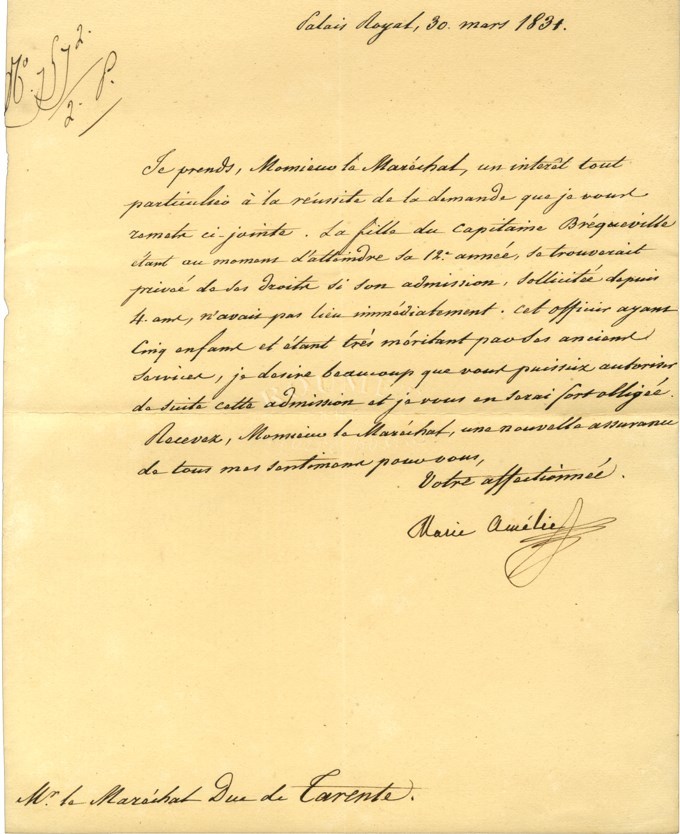 Palais Royal, 30. mars 1831.
Nº 757 2.
2. P.
Je prends, Monsieur le Maréchal, un intérêt tout
particulier à la réussite de la demande que je vous
remets ci-jointe. La fille du Capitaine Bréqueville
étant au moment d'atteindre sa 12.e année, se trouverait
privée de ses droits si son admission, sollicitée depuis
4. ans, n'avait pas lieu immédiatement. Cet officier ayant
Cinq enfans et étant très méritant par ses anciens
services, je desire beaucoup que vous puissiez autoriser
de suite cette admission et je vous en serai fort obligée.
Recevez, Monsieur le Maréchal, une nouvelle assurance
de tous mes sentimens pour vous,
Votre affectionnée.
Marie Amélie
Mr. le Maréchal Duc de Tarente.